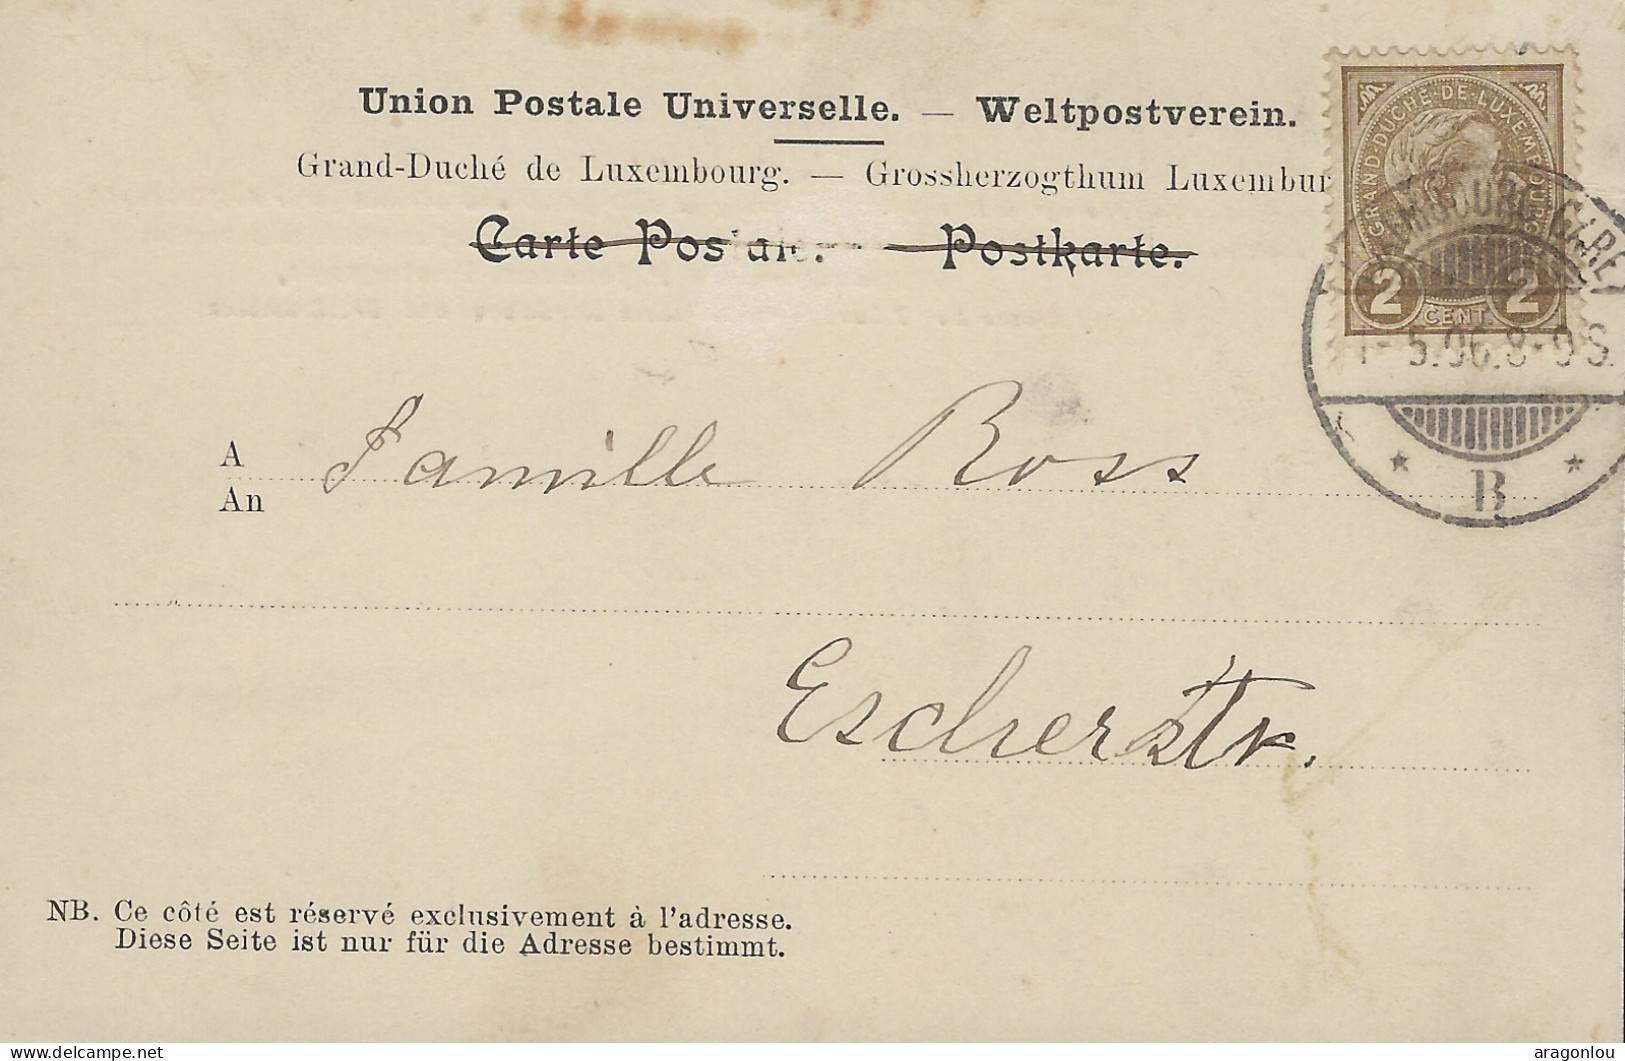 Union Postale Universelle. — Weltpostverein.
Grand-Duché de Luxembourg. — Grossherzogthum Luxembur
Carte Postale. — Postkarte.
GRAND-DUCHÉ-DE-LUXEMBOURG
2 CENT. 2
LUXEMBOURG-GARE
1-5.06.8-9S.
B
A
An
Famille Ross
Escherstr.
NB. Ce côté est réservé exclusivement à l'adresse.
Diese Seite ist nur für die Adresse bestimmt.
aragonlou
delcampe.net